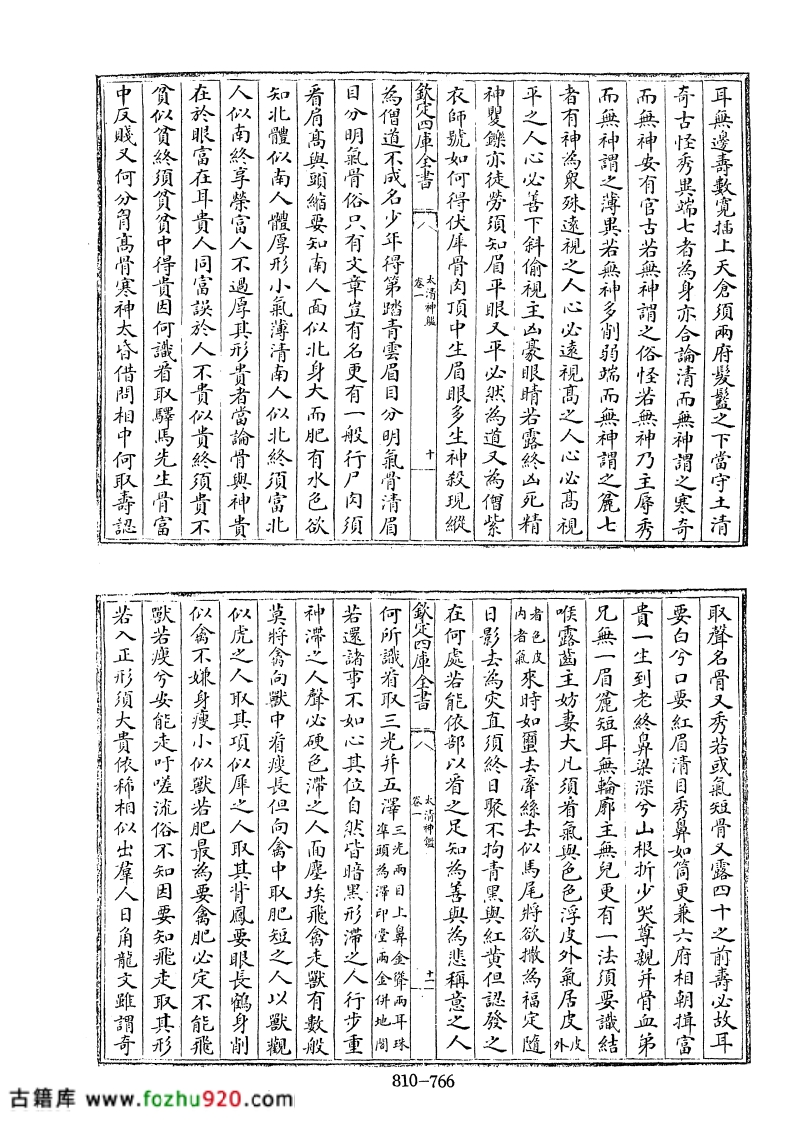 耳無邊壽數寬插上天倉須兩府髮鬢之下當守土清
奇古怪秀異端七者為身亦合論清而無神謂之寒奇
而無神安有官古若無神謂之俗怪若無神乃主辱秀
而無神謂之薄異若無神多削弱端而無神謂之麄七
者有神為衆殊遠視之人心必遠視高之人心必高視
平之人心必善下斜偷視主凶豪眼睛若露終凶死精
神矍鑠亦徒勞須知眉平眼又平必然為道又為僧紫
衣師號如何得伏犀骨肉頂中生眉眼多生神殺現縱
欽定四庫全書
太清神鑑
卷一
十
為僧道不成名少年得第踏青雲眉目分明氣骨清眉
目分明氣骨俗只有文章豈有名更有一般行尸肉須
看肩高與頭縮要知南人面似北身大而肥有水色欲
知北體似南人體厚形小氣薄清南人似北終須富北
人似南終享榮富人不過厚其形貴者當論骨與神貴
在於眼富在耳貴人同富誤於人不貴似貴終須貴不
貧似貧終須貧貧中得貴因何識看取驛馬先生骨富
中反賤又何分胷高骨寒神太昏借問相中何取壽認
取聲名骨又秀若或氣短骨又露四十之前壽必故耳
要白兮口要紅眉清目秀鼻如筒更兼六府相朝揖富
貴一生到老終鼻梁深兮山根折少哭尊親并骨血弟
兄無一眉麄短耳無輪廓主無兒更有一法須要識結
喉露齒主妨妻大凡須看氣與色色浮皮外氣居皮外皮
者色皮
內者氣來時如璽去牽絲去似馬尾將欲撒為福定隨
日影去為灾直須終日聚不拘青黑與紅黄但認發之
在何處若能依部以看之足知為善與為悲稱意之人
欽定四庫全書
太清神鑑
卷一
十一
何所識看取三光并五澤三光兩目上鼻金聳兩耳珠
準頭為澤印堂兩金併地閣
若還諸事不如心其位自然皆暗黑形滯之人行步重
神滯之人聲必硬色滯之人面塵埃飛禽走獸有數般
莫將禽向獸中看瘦長但向禽中取肥短之人以獸觀
似虎之人取其項似犀之人取其背鳳要眼長鶴身削
似禽不嫌身瘦小似獸若肥最為要禽肥必定不能飛
獸若瘦兮安能走吁嗟流俗不知因要知飛走取其形
若入正形須大貴依稀相似出羣人日角龍文雖謂奇
810-766
古籍库 www.fozhu920.com